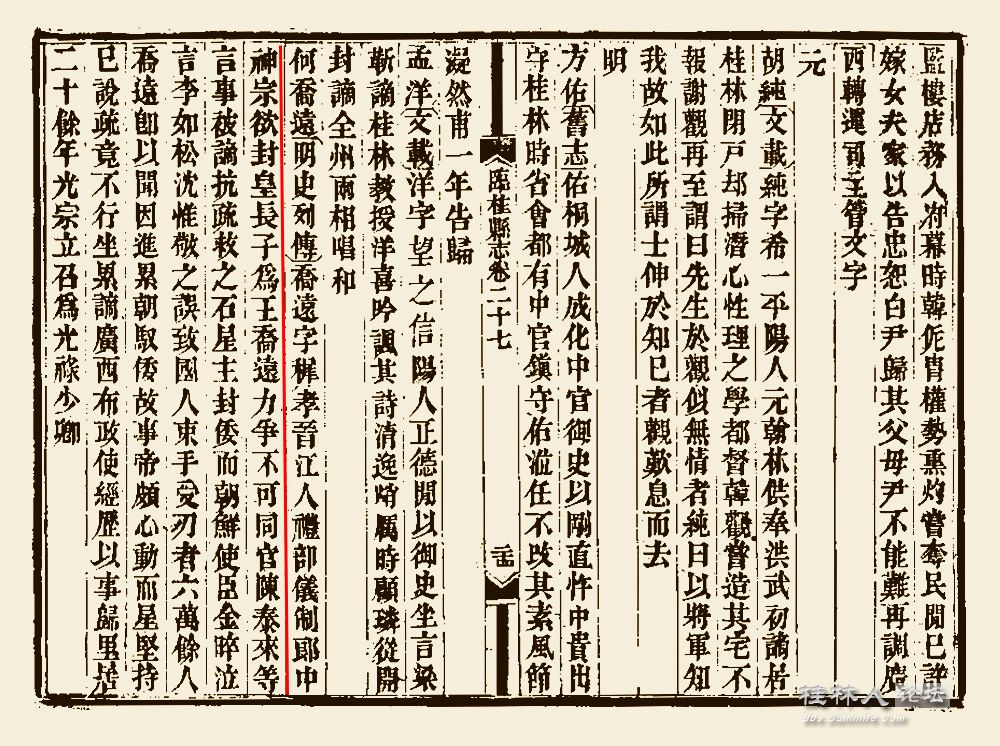 監樓店務入府幕時韓侂冑權勢熏灼嘗奪民閒已許
嫁女夫家以告忠恕白尹歸其父母尹不能難再調廣
西轉運司主管文字
元
胡純文載純字希一平陽人元翰林供奉洪武初謫居
桂林閉戸却掃潛心性理之學都督韓觀嘗造其宅不
報謝觀再至謂曰先生於觀似無情者純曰以將軍知
我故如此所謂士伸於知已者觀歎息而去
明
方佑舊志佑桐城人成化中官御史以剛直忤中貴出
守桂林時省會都有中官鎮守佑涖任不改其素風節
臨桂縣志卷二十七
凝然甫一年告歸
孟洋文載洋字望之信陽人正德閒以御史坐言梁
靳謫桂林教授洋喜吟諷其詩清逸峭厲時顧璘從開
封謫全州兩相唱和
何喬遠明史列傳喬遠字穉孝晉江人禮部儀制郎中
神宗欲封皇長子爲王喬遠力爭不可同官陳泰來等
言事被謫抗疏救之石星主封倭而朝鮮使臣金晬泣
言李如松沈惟敬之誤致國人束手受刃者六萬餘人
喬遠卽以聞因進累朝馭倭故事帝頗心動而星堅持
已說疏竟不行坐累謫廣西布政使經歷以事歸里居
二十餘年光宗立召爲光祿少卿
桂林人论坛
bbs.Guilinlife.Com